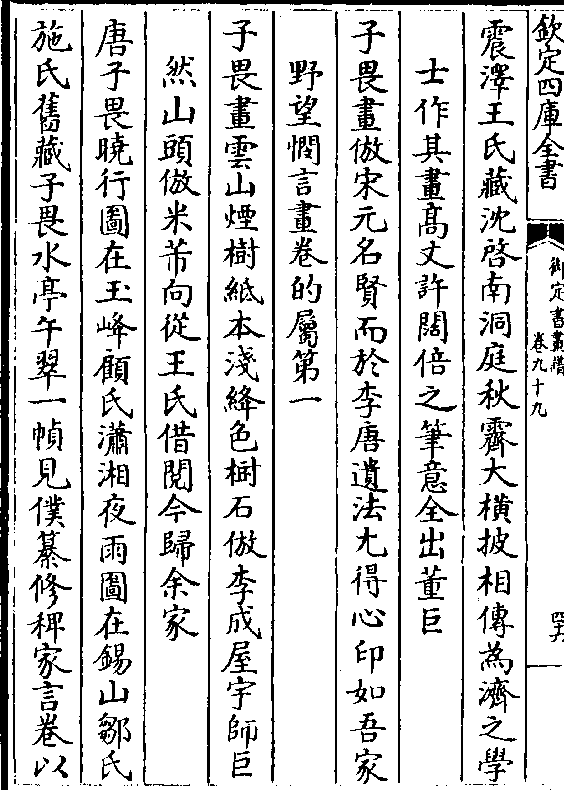 欽定四庫全書
御定書畫譜
卷九十九
四六
震澤王氏藏沈啓南洞庭秋霽大橫披相傳為濟之學
士作其畫高丈許濶倍之筆意全出董巨
子畏畫倣宋元名賢而於李唐遺法尤得心印如吾家
野望憫言畫卷的屬第一
子畏畫雲山煙樹紙本淺絳色樹石倣李成屋宇師巨
然山頭倣米芾向從王氏借閱今歸余家
唐子畏曉行圖在玉峰顧氏瀟湘夜雨圖在錫山鄒氏
施氏舊藏子畏水亭午翠一幀見僕纂修稗家言卷以